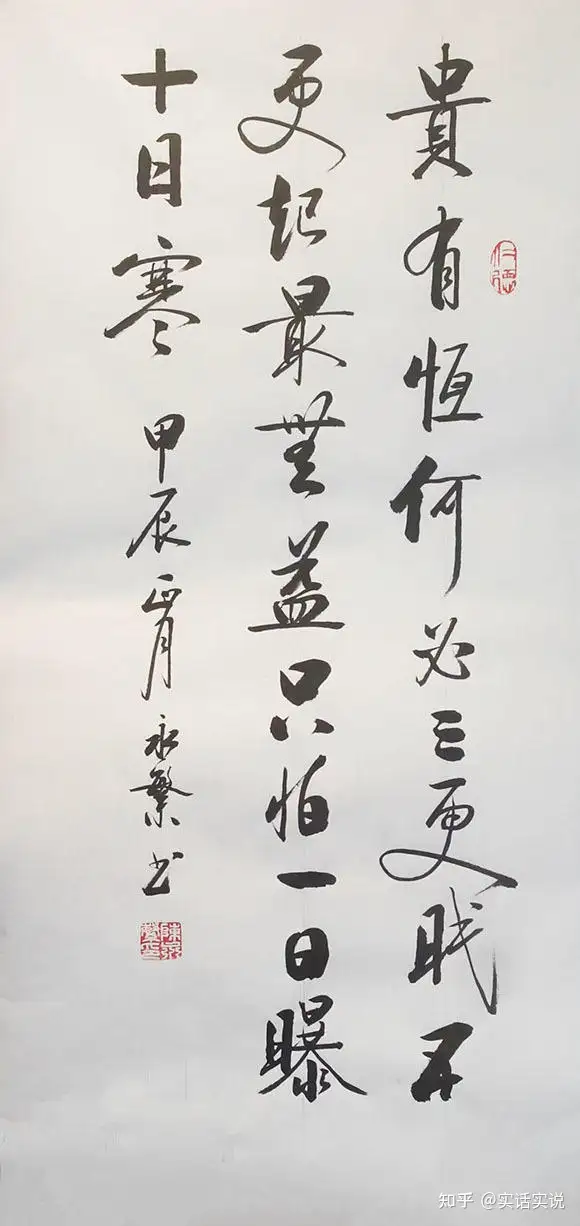 貴有恒何必三更眠五
更起最無益只怕一日曝
十日寒 甲辰正月永繁书
仁德
陳永繁印
知乎 @实话实说